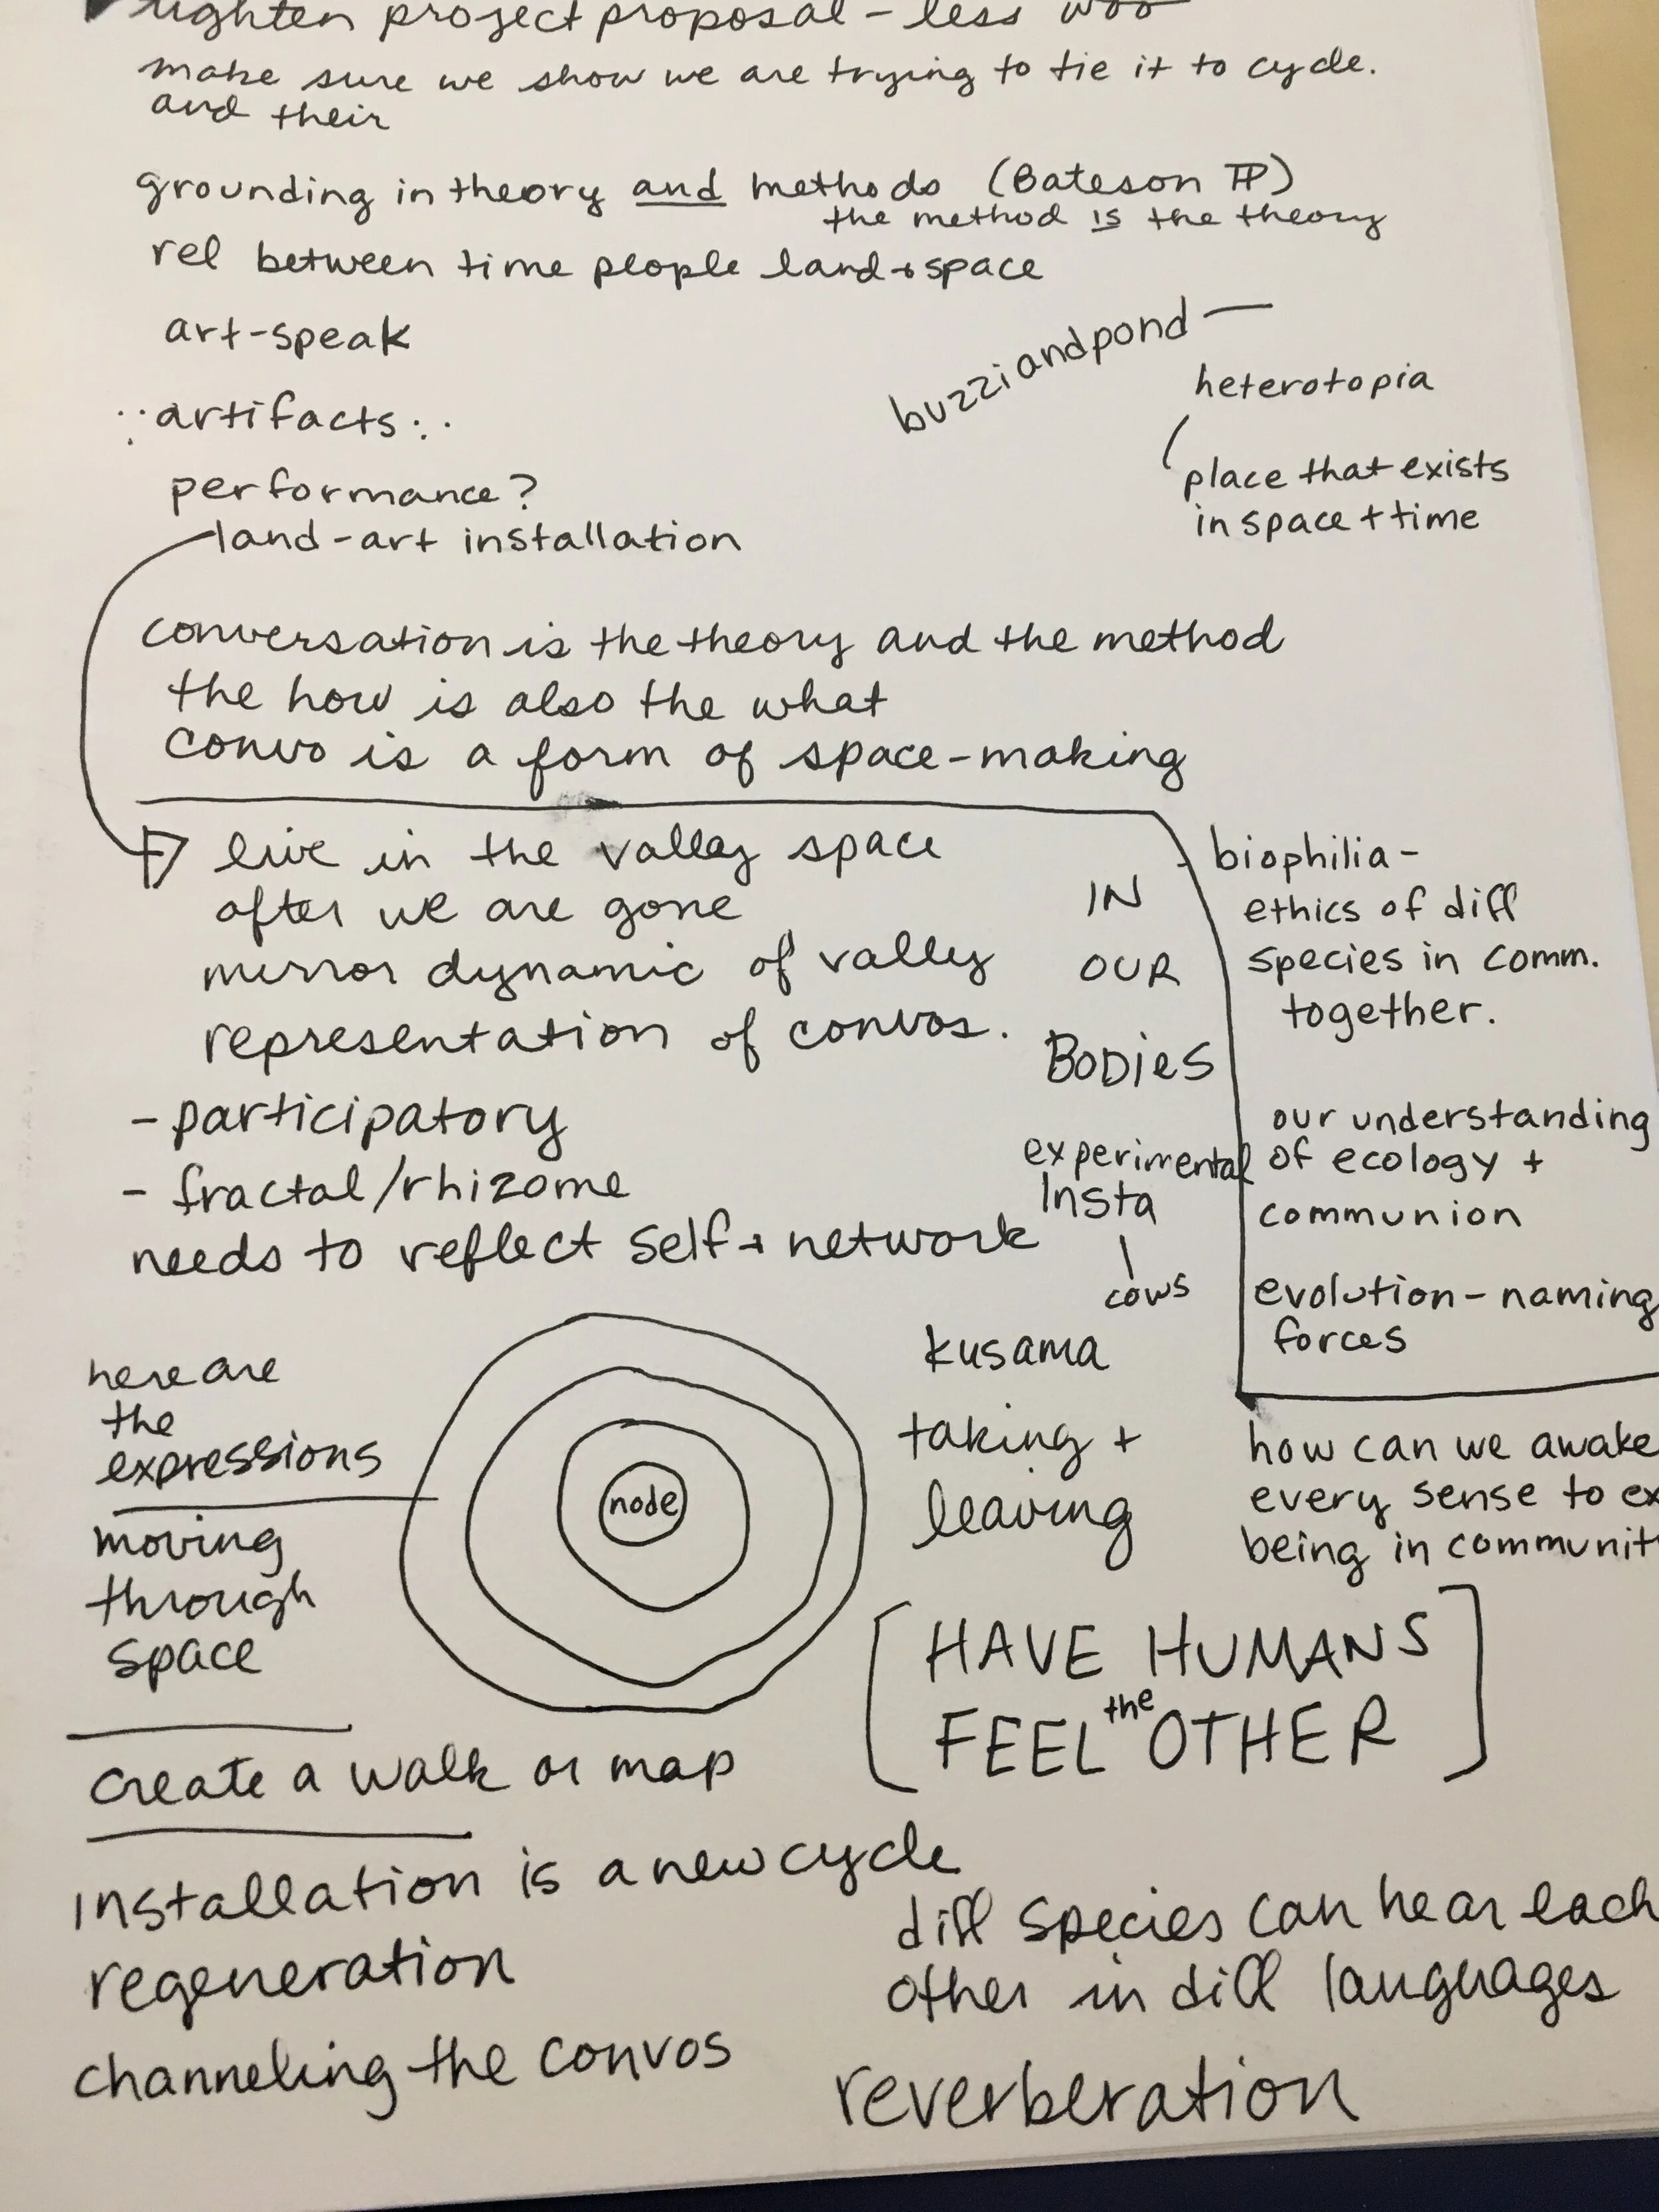 tighten project proposal - less woo
make sure we show we are trying to tie it to cycle.
and their
grounding in theory and methods (Bateson TP)
the method is the theory
rel between time people land + space
art-speak
artifacts
performance?
land-art installation
buzziandpond —
heterotopia
place that exists
in space + time
conversation is the theory and the method
the how is also the what
convo is a form of space-making
live in the valley space
after we are gone
mirror dynamic of valley
representation of convos.
- participatory
- fractal/rhizome
needs to reflect self + network
IN
OUR
BODIES
experimental
Insta
cows
biophilia -
ethics of diff
species in comm.
together.
our understanding
of ecology +
communion
evolution - naming
forces
here are
the
expressions
moving
through
space
node
kusama
taking +
leaving
how can we awake
every sense to ex
being in communit
[HAVE HUMANS
FEEL the OTHER]
create a walk or map
installation is a new cycle
regeneration
channeling the convos
diff species can hear each
other in diff languages
reverberation